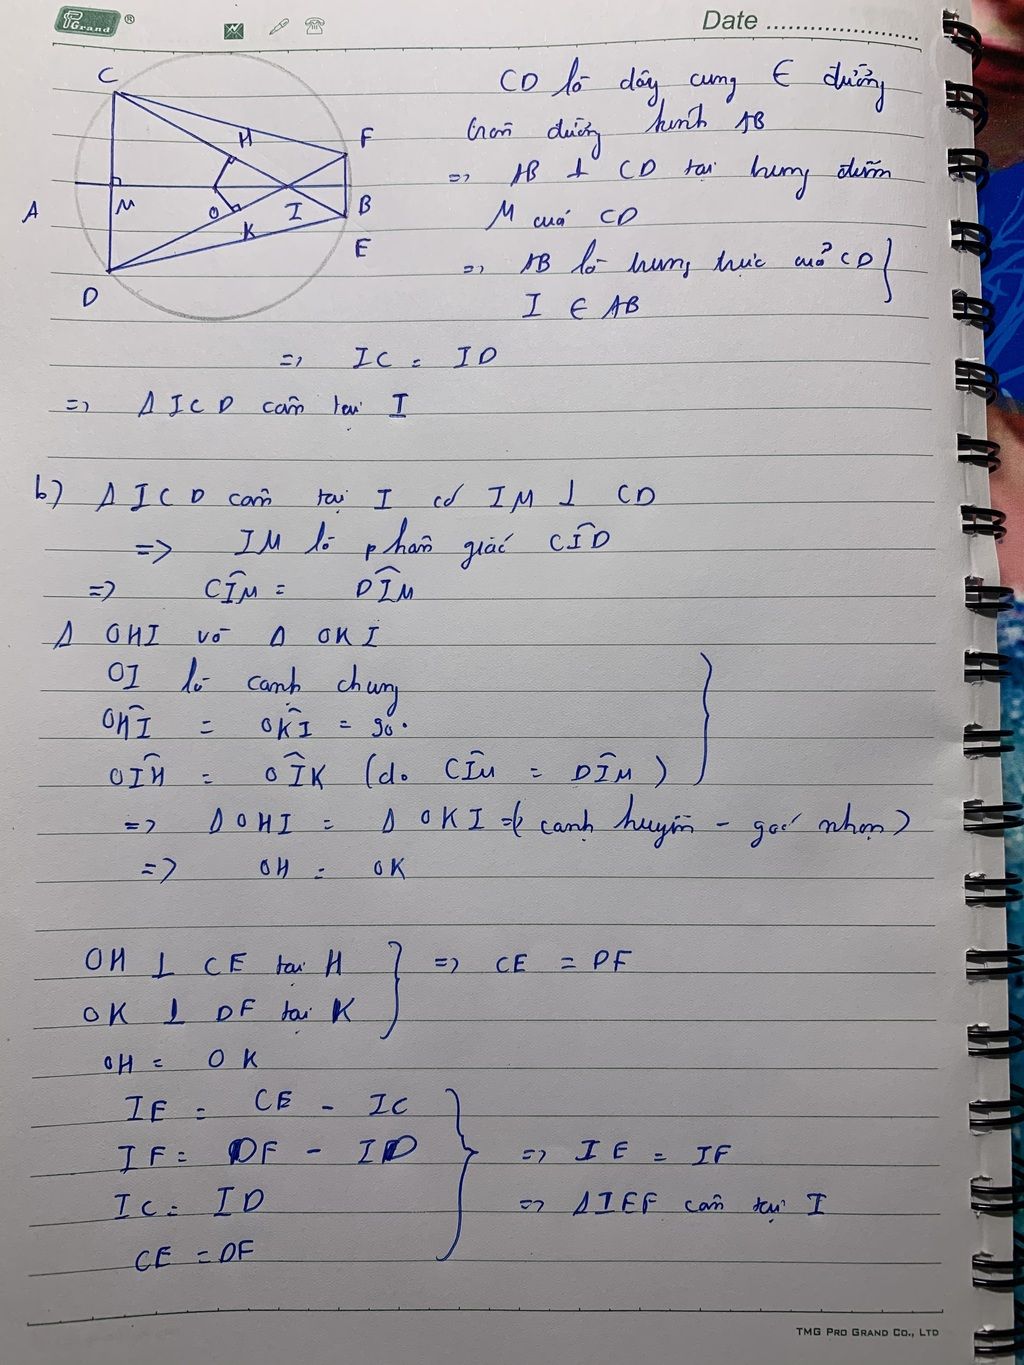 PGrand ®
Date ....................
C
H
F
A
M
O
I
B
K
E
D
CD là dây cung ∈ đường
tròn đường kính AB
=> AB ⊥ CD tại trung điểm
M của CD
=> AB là trung trực của CD
I ∈ AB
=> IC = ID
=> Δ ICD cân tại I
b) Δ ICD cân tại I có IM ⊥ CD
=> IM là phân giác CÎD
=> CÎM = DÎM
Δ OHI và Δ OKI
OI là cạnh chung
OĤI = OK̂I = 90°
OÎH = OÎK (do CÎM = DÎM)
=> Δ OHI = Δ OKI =( cạnh huyền - góc nhọn)
=> OH = OK
OH ⊥ CE tại H => CE = DF
OK ⊥ DF tại K
OH = OK
IE = CE - IC
IF = DF - ID => IE = IF
IC = ID => ΔIEF cân tại I
CE = DF
TMG PRO GRAND CO., LTD